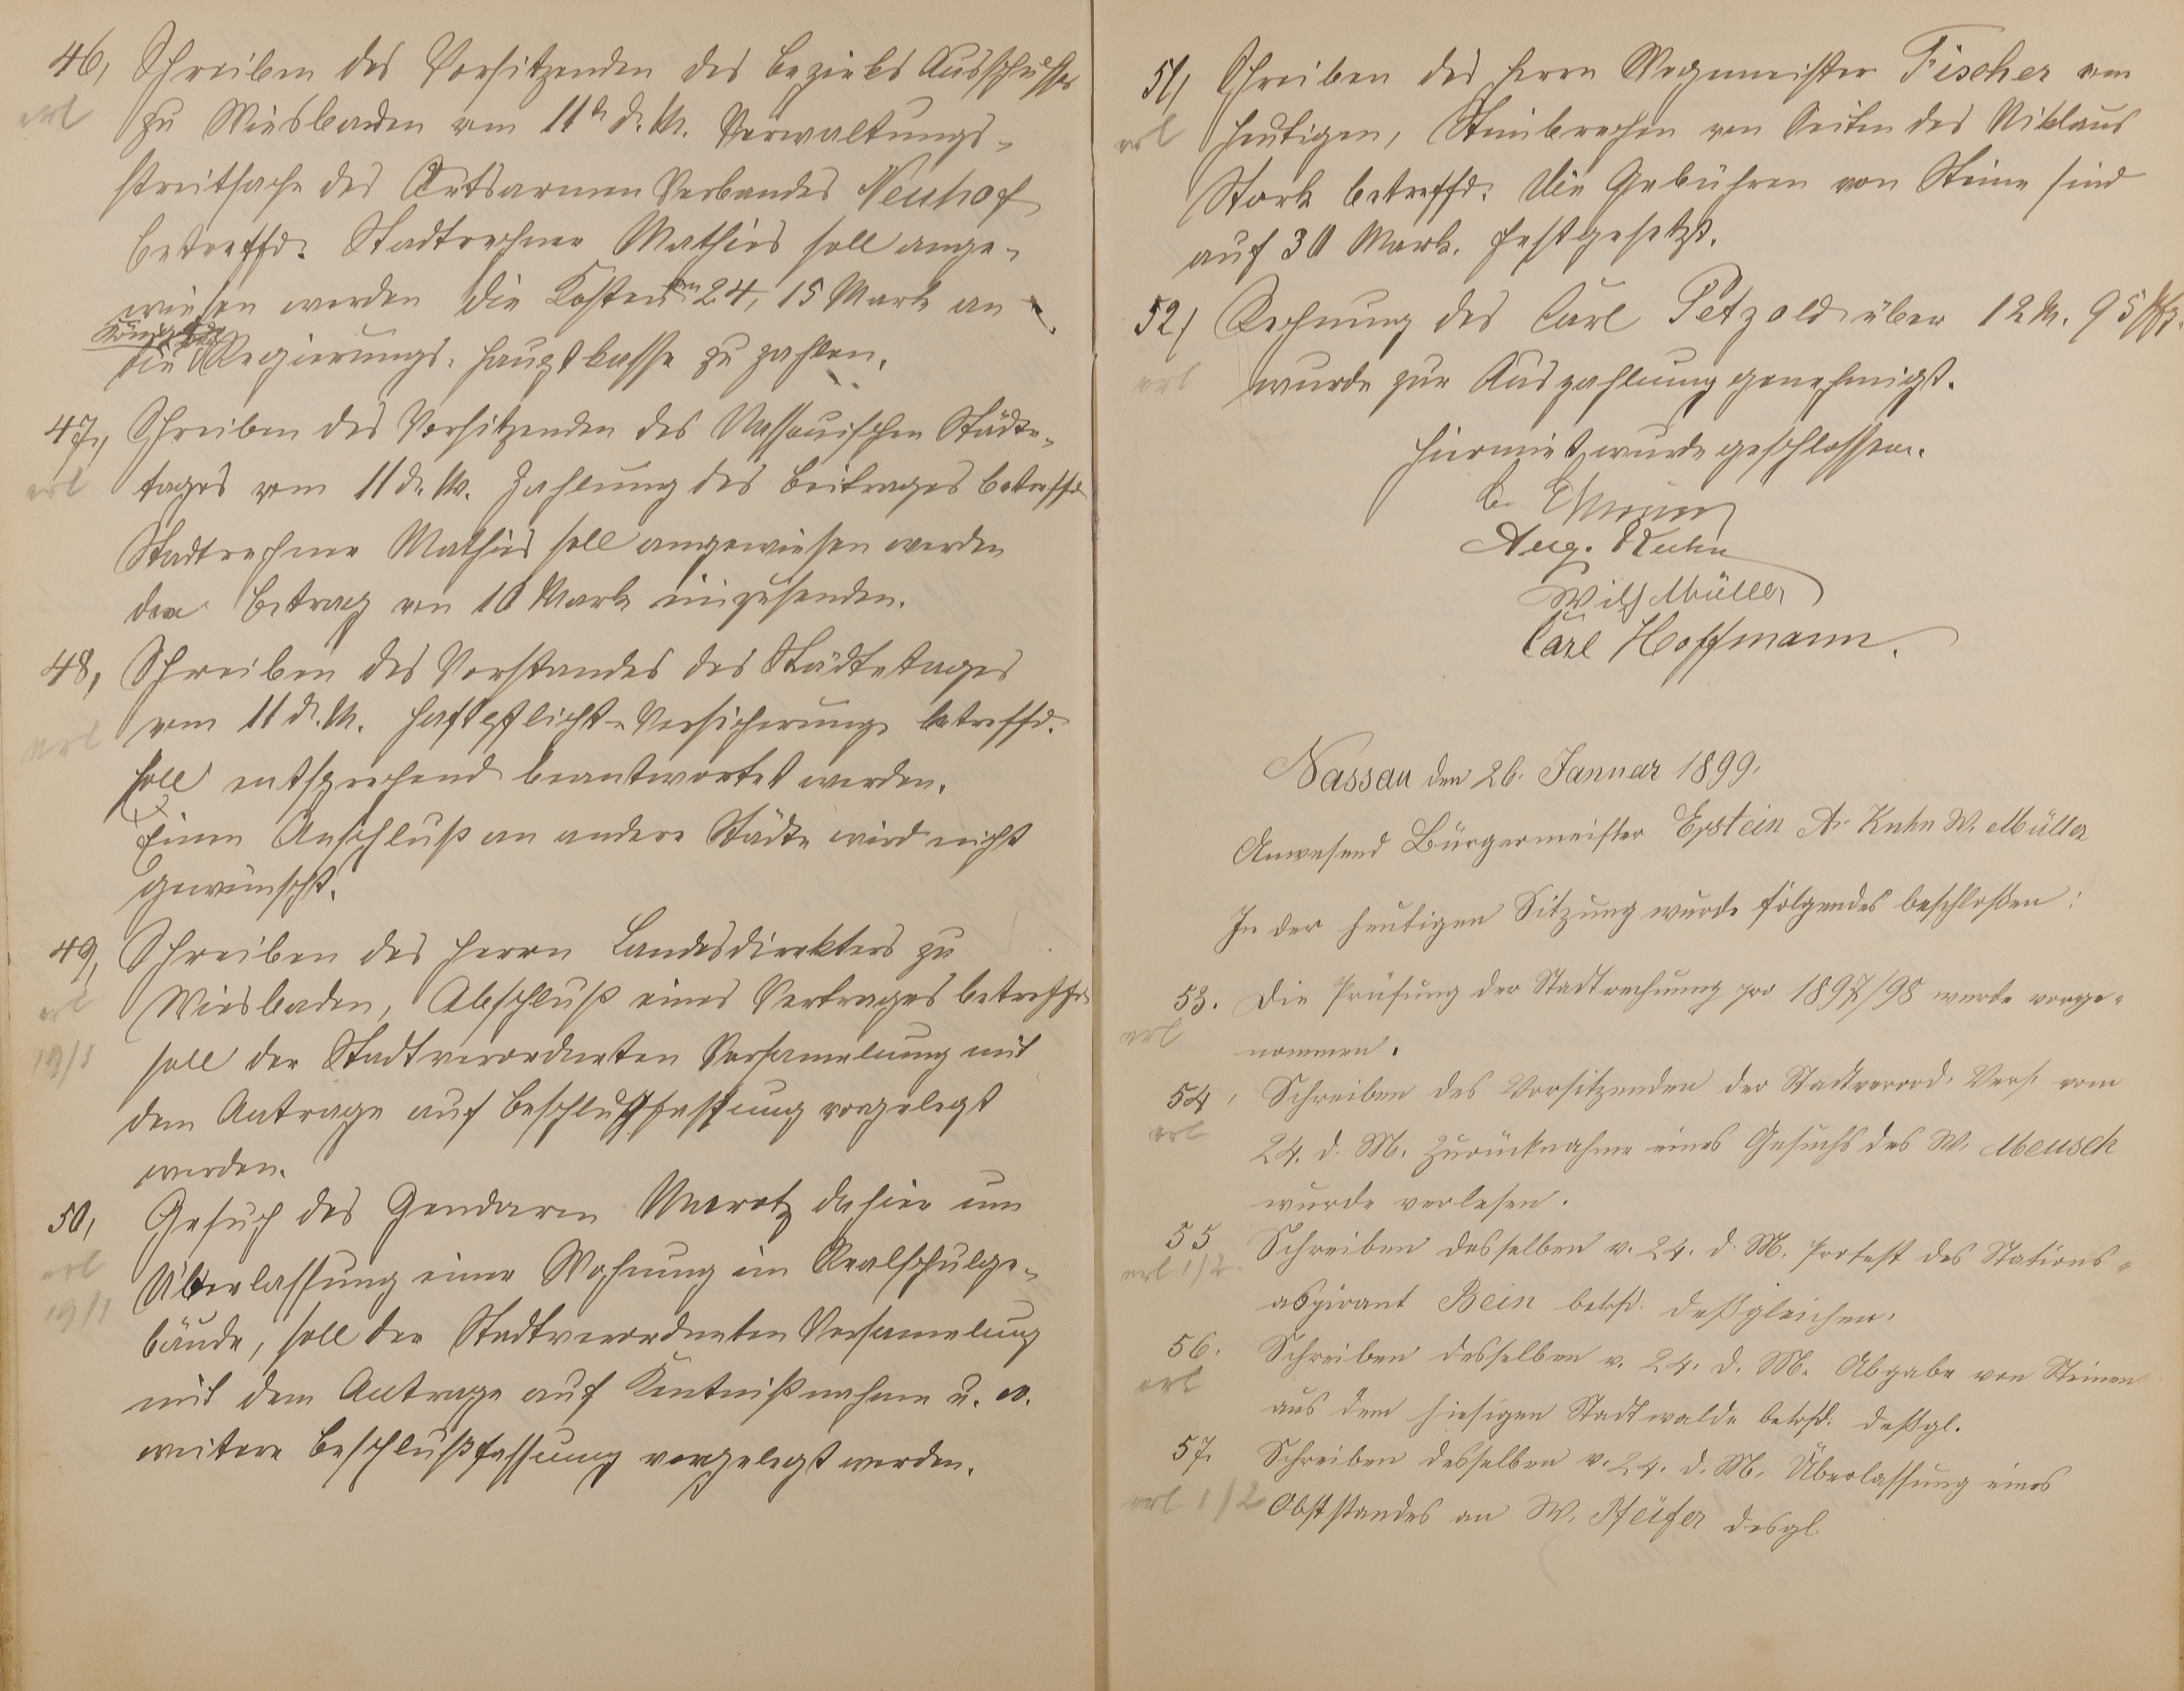 46, Schreiben des Vorsitzenden des Bezirks Ausschusses
erl
zu Wiesbaden vom 11t d. M. Verwaltungs-
streitsache des Ortsarmen Verbandes Neuhof
betreffd. Stadtrechner Mathies soll ange-
wiesen werden die Kosten von 24,15 Mark an
die Regierungs-Hauptkasse zu zahlen.
47, Schreiben des Vorsitzenden des Nassauischen Städte-
erl
tages vom 11 d. M. Zahlung des Beitrages betreffd
Stadtrechner Mathies soll angewiesen werden
den Betrag von 10 Mark einzusenden.
48, Schreiben des Vorstandes des Städtetages
erl
vom 11 d. M. Haftpflicht-Versicherung betreffd.
soll entsprechend beantwortet werden.
Einen Anschluß an andere Städte wird nicht
gewünscht.
49, Schreiben des Herrn Landesdirektors zu
erl
19/1
Wiesbaden, Abschluß eines Vertrages betreffd
soll der Stadtverordneten Versamelung mit
dem Antrage auf Beschlußfassung vorgelegt
werden.
50, Gesuch des Gendarm Marotz dahier um
erl
19/1
Überlassung einer Wohnung im Realschulge-
bäude, soll der Stadtverordneten Versamelung
mit dem Antrage auf Kentnißnahme u. e.
weitere Beschlußfassung vorgelegt werden.
51, Schreiben des Herrn Wegemeister Fischer vom
erl
Heutigen, Steinbrechen von Seiten des Niklaus
Stork betreffd. Die Gebühren von Steine sind
auf 30 Mark. festgesetzt.
52, Rechnung des Carl Petzold über 12 M. 95 Pfg.
erl
wurde zur Auszahlung genehmigt.
Hiermit wurde geschlossen.
Aug. Kuhn
Wilh Müller
Carl Hoffmann.
Nassau den 26. Januar 1899.
Anwesend Bürgermeister Epstein A. Kuhn W. Müller
In der heutigen Sitzung wurde folgendes beschloßen:
53. Die Prüfung der Stadtrechnung pro 1897/98 wurde vorge-
erl
nommen.
54, Schreiben des Vorsitzenden der Stadtverord. Vers. vom
erl
24. d. M. Zurücknahme eines Gesuchs des W. Meusch
wurde verlesen.
55 Schreiben desselben v. 24. d. M. Protest des Stations-
erl 1/2
aspirant Bein betrfd. deßgleichen.
56. Schreiben desselben v. 24. d. M. Abgabe von Steinen
erl
aus dem hiesigen Stadtwalde betrfd. deßgl.
57. Schreiben desselben v. 24. d. M. Überlassung eines
erl 1/2
Obststandes an W. Pfeifer desgl.